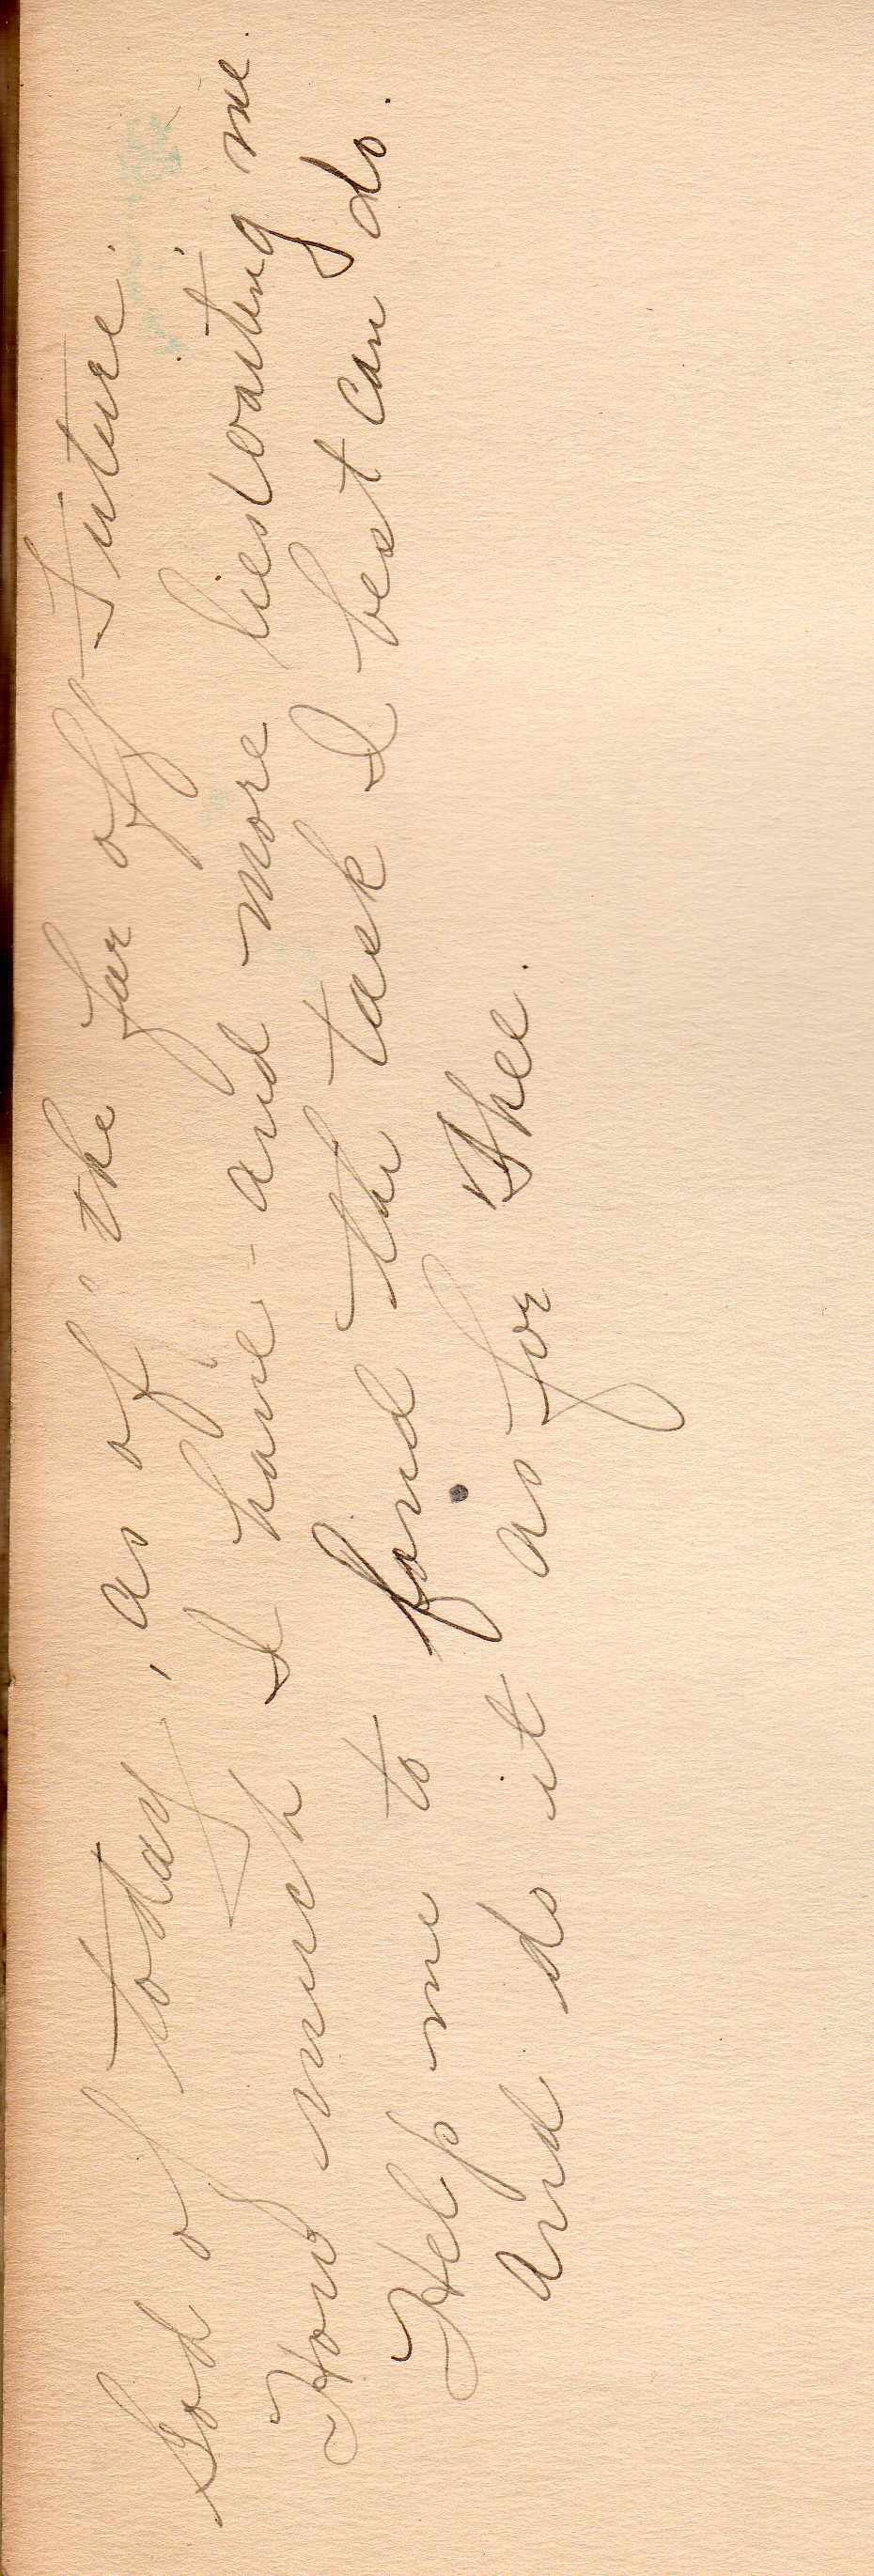 God of today, as of "the far off Future.
How much I have - and more lies waiting me.
Help me to find the task I best can do.
And do it as for Thee.